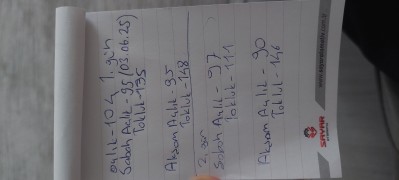 açlık-104 1. gün
Sabah Açlık-95 (03.06.25)
Tokluk-135
Akşam Açlık-95
Tokluk-148
2. gün
Sabah Açlık-97
Tokluk-111
Akşam Açlık-90
Tokluk-146
SAYAR